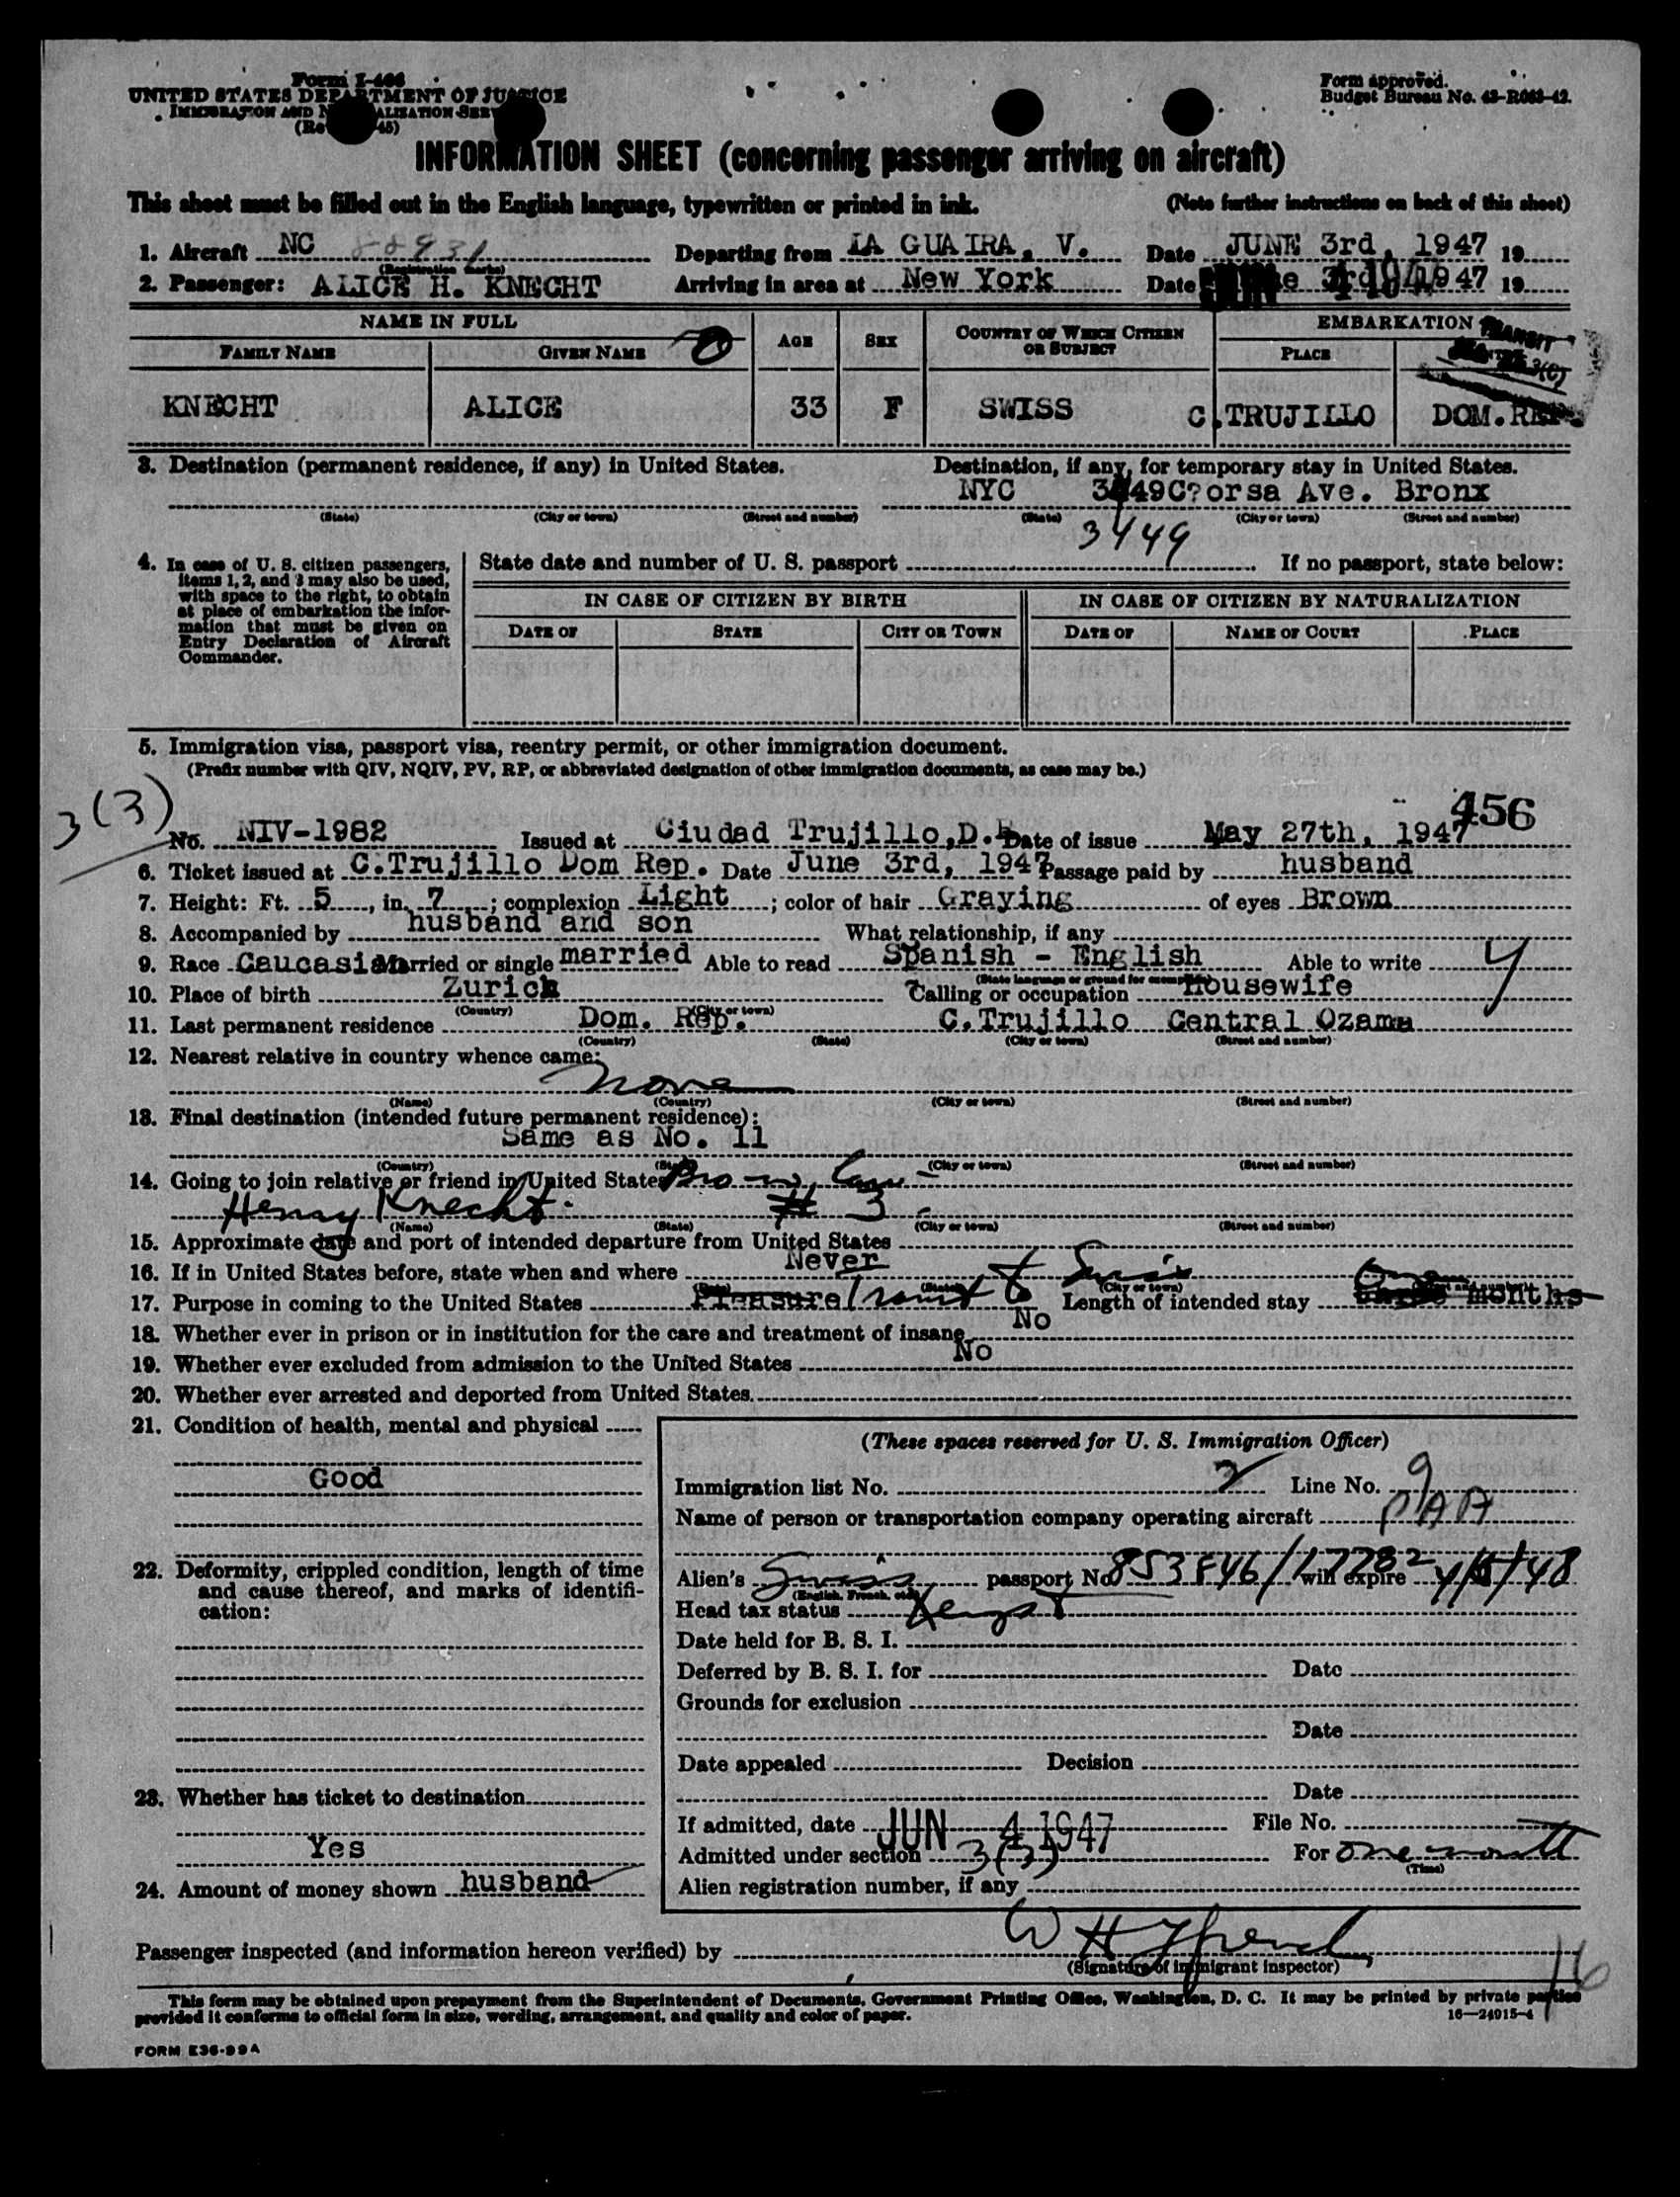 Form I-466
UNITED STATES DEPARTMENT OF JUSTICE
IMMIGRATION AND NATURALIZATION SERVICE
45)
Form approved.
Budget Bureau No. 43-R063-42.
INFORMATION SHEET (concerning passenger arriving on aircraft)
This sheet must be filled out in the English language, typewritten or printed in ink. (Note further instructions on back of this sheet)
1. Aircraft NC 88931 Departing from LA GUAIRA, V. Date JUNE 3rd, 1947 19
(Registration marks)
2. Passenger: ALICE H. KNECHT Arriving in area at New York Date 3rd 1947 19
NAME IN FULL AGE SEX COUNTRY OF WHICH CITIZEN OR SUBJECT EMBARKATION TRANSIT
FAMILY NAME GIVEN NAME PLACE 3(C)
KNECHT ALICE 33 F SWISS C.TRUJILLO DOM.REP.
3. Destination (permanent residence, if any) in United States. Destination, if any, for temporary stay in United States.
NYC 3449C?orsa Ave. Bronx
(State) (City or town) (Street and number) (State) (City or town) (Street and number)
3449
4. In case of U. S. citizen passengers, items 1, 2, and 3 may also be used, with space to the right, to obtain at place of embarkation the information that must be given on Entry Declaration of Aircraft Commander.
State date and number of U. S. passport If no passport, state below:
IN CASE OF CITIZEN BY BIRTH IN CASE OF CITIZEN BY NATURALIZATION
DATE OF STATE CITY OR TOWN DATE OF NAME OF COURT PLACE
5. Immigration visa, passport visa, reentry permit, or other immigration document.
(Prefix number with QIV, NQIV, PV, RP, or abbreviated designation of other immigration documents, as case may be.)
3(3)
456
No. NIV-1982 Issued at Ciudad Trujillo,D.R. Date of issue May 27th, 1947
6. Ticket issued at C.Trujillo Dom Rep. Date June 3rd, 1947 Passage paid by husband
7. Height: Ft. 5, in. 7; complexion Light; color of hair Graying of eyes Brown
8. Accompanied by husband and son What relationship, if any
9. Race Caucasian Married or single married Able to read Spanish - English Able to write y
(State language or ground for exemption)
10. Place of birth Zurich Calling or occupation Housewife
(Country) (City or town)
11. Last permanent residence Dom. Rep. C.Trujillo Central Ozama
(Country) (State) (City or town) (Street and number)
12. Nearest relative in country whence came:
none
(Name) (Country) (City or town) (Street and number)
13. Final destination (intended future permanent residence):
Same as No. 11
(Country) (State) (City or town) (Street and number)
14. Going to join relative or friend in United States Bro-in-law
Henry Knecht # 3
(Name) (State) (City or town) (Street and number)
15. Approximate date and port of intended departure from United States
16. If in United States before, state when and where Never
(Date) (State) (City or town) (Street and number)
17. Purpose in coming to the United States Pleasure Transit to Swiss Length of intended stay One months
18. Whether ever in prison or in institution for the care and treatment of insane No
19. Whether ever excluded from admission to the United States No
20. Whether ever arrested and deported from United States.
21. Condition of health, mental and physical
Good
22. Deformity, crippled condition, length of time and cause thereof, and marks of identification:
23. Whether has ticket to destination
Yes
24. Amount of money shown husband
(These spaces reserved for U. S. Immigration Officer)
Immigration list No. 2 Line No. 9
Name of person or transportation company operating aircraft PAA
Alien's Swiss passport No. 853846/17782 will expire 4/15/48
(English, French, etc.)
Head tax status Exempt
Date held for B. S. I.
Deferred by B. S. I. for Date
Grounds for exclusion
Date
Date appealed Decision
Date
If admitted, date JUN 4 1947 File No.
Admitted under section 3(3) For one month
(Time)
Alien registration number, if any
Passenger inspected (and information hereon verified) by
(Signature of immigrant inspector)
16
This form may be obtained upon prepayment from the Superintendent of Documents, Government Printing Office, Washington, D. C. It may be printed by private parties
provided it conforms to official form in size, wording, arrangement, and quality and color of paper. 16—24915-4
FORM E36-99A